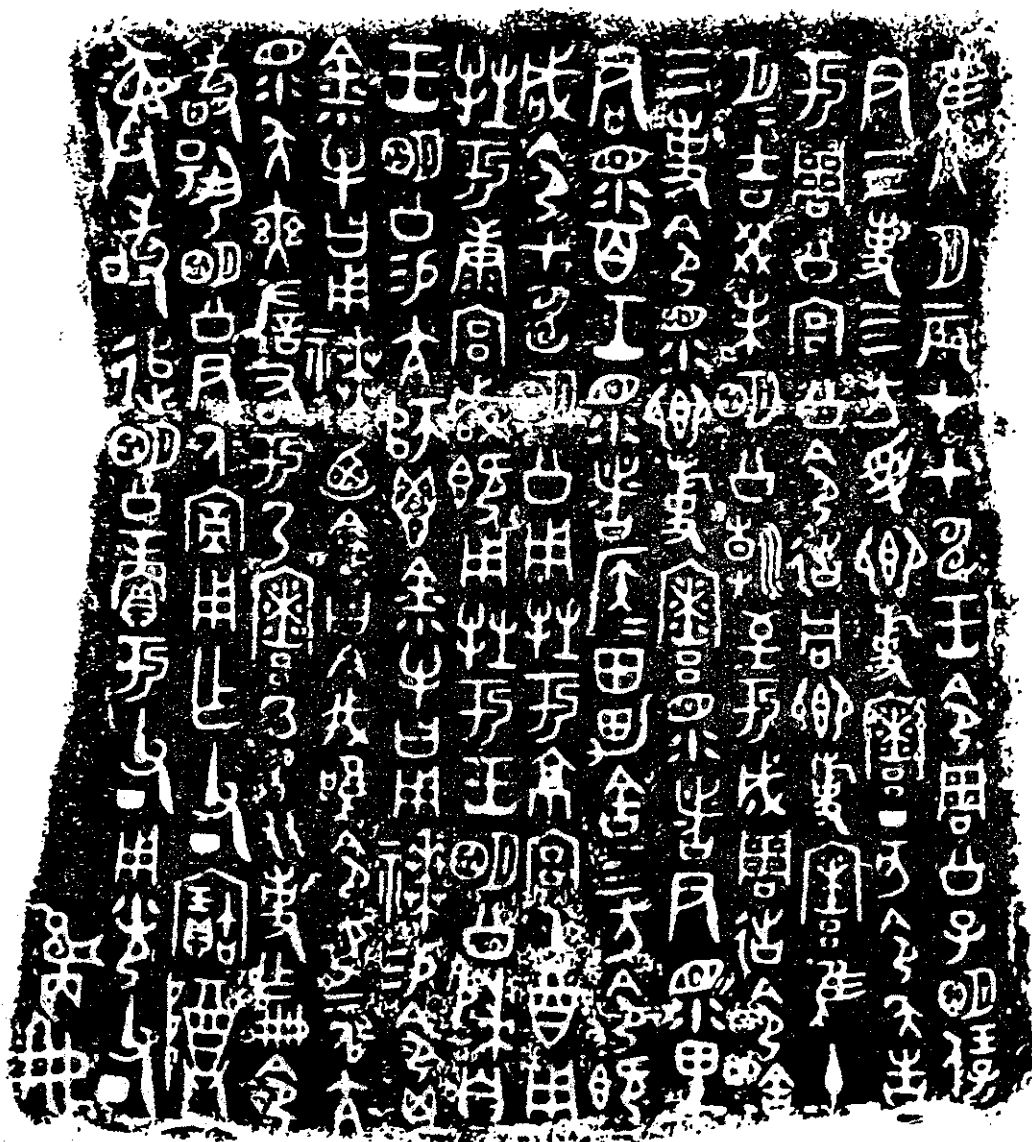 隹八月辰才甲申王令周公子明保
尹三事四方受卿事寮丁亥令夨告
于周公宮公令𢓊同卿事寮隹十
月月吉癸未明公朝至于成周𢓊令舍
三事令眔卿事寮眔者尹眔里
君眔百工眔者侯侯田男舍四方令既
咸令甲申明公用牲于京宮乙酉用
牲于康宮咸既用牲于王明公歸自
王明公易亢師鬯金小牛曰用𥛱易令鬯
金小牛曰用𥛱廼令曰今我唯令女二人亢
眔夨奭左右于乃寮以乃友事乍册令
敢揚明公尹厥宁用乍父丁寶尊彝
敢追明公賞于父丁用光父丁
雋册